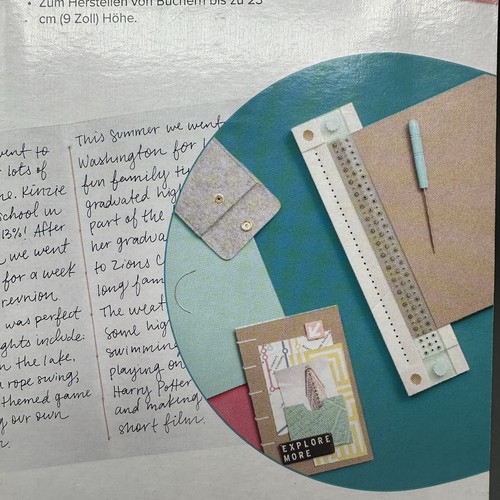 Zum Herstellen von Büchern bis zu 23
cm (9 Zoll) Höhe.
went to
lots of
me. Kinzie
school in
13%! After
we went
for a week
reunion.
was perfect
ghts include:
n the lake,
rope swings,
themed game
g our own
This summer we went
Washington for
fun family
graduated high
part of the
her gradua
to Zions C
long fam
The weat
some hig
swimming
playing on
Harry Potter
and making
short film.
EXPLORE
MORE